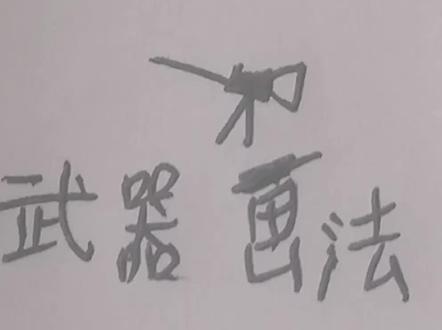 武器画法